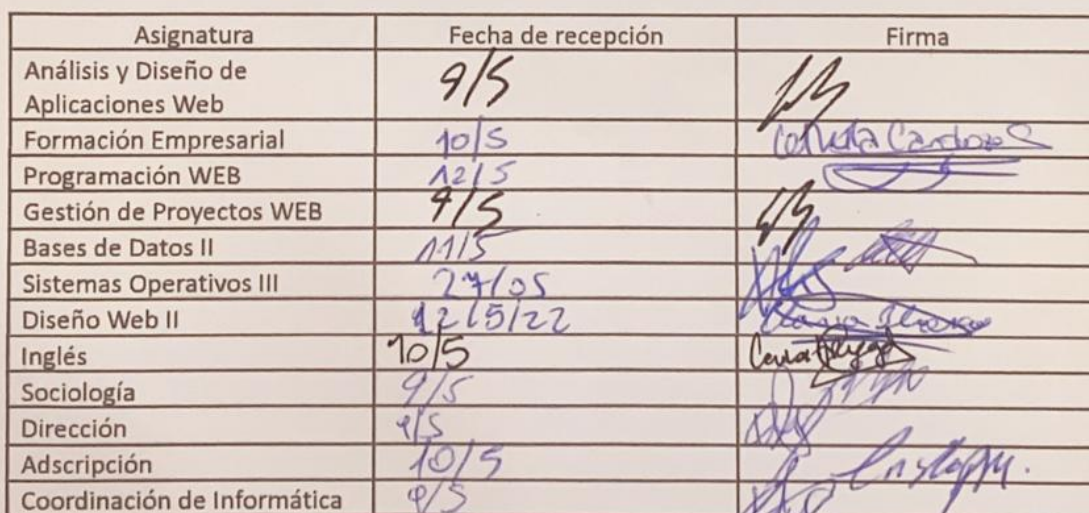 Asignatura Fecha de recepción Firma
Análisis y Diseño de
Aplicaciones Web 9/5
Formación Empresarial 10/5
Programación WEB 12/5
Gestión de Proyectos WEB 9/5
Bases de Datos II 11/5
Sistemas Operativos III 27/05
Diseño Web II 12/5/22
Inglés 10/5
Sociología 9/5
Dirección 9/5
Adscripción 10/5
Coordinación de Informática 9/5